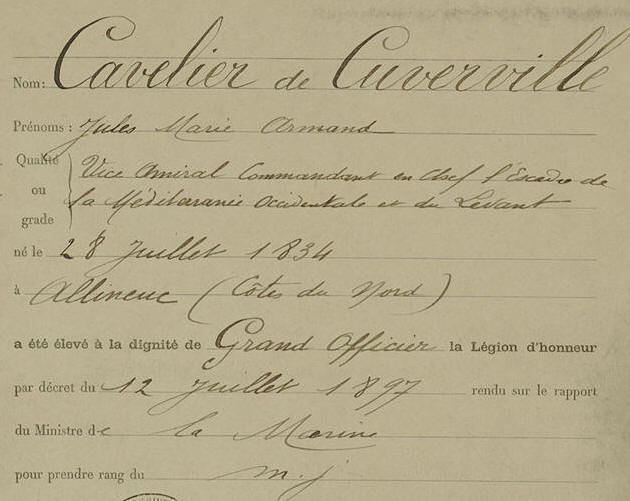 Nom: Cavelier de Cuverville
Prénoms: Jules Marie Armand
Qualité ou grade Vice Amiral Commandant en chef l'Escadre de
la Méditerranée Occidentale et du Levant
né le 28 Juillet 1834
à Allineuc (Côtes du Nord)
a été élevé à la dignité de Grand Officier la Légion d'honneur
par décret du 12 Juillet 1897 rendu sur le rapport
du Ministre de la Marine
pour prendre rang du m. j